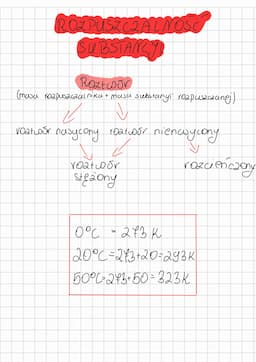 ROZPUSZCZALNOŚĆ
SUBSTANCJI
Roztwór
(masa rozpuszczalnika + masa substancji rozpuszczanej)
roztwór nasycony roztwór nienasycony
roztwór stężony
rozcieńczony
0°C = 273 K
20°C = 273+20 = 293K
50°C = 273+50 = 323K